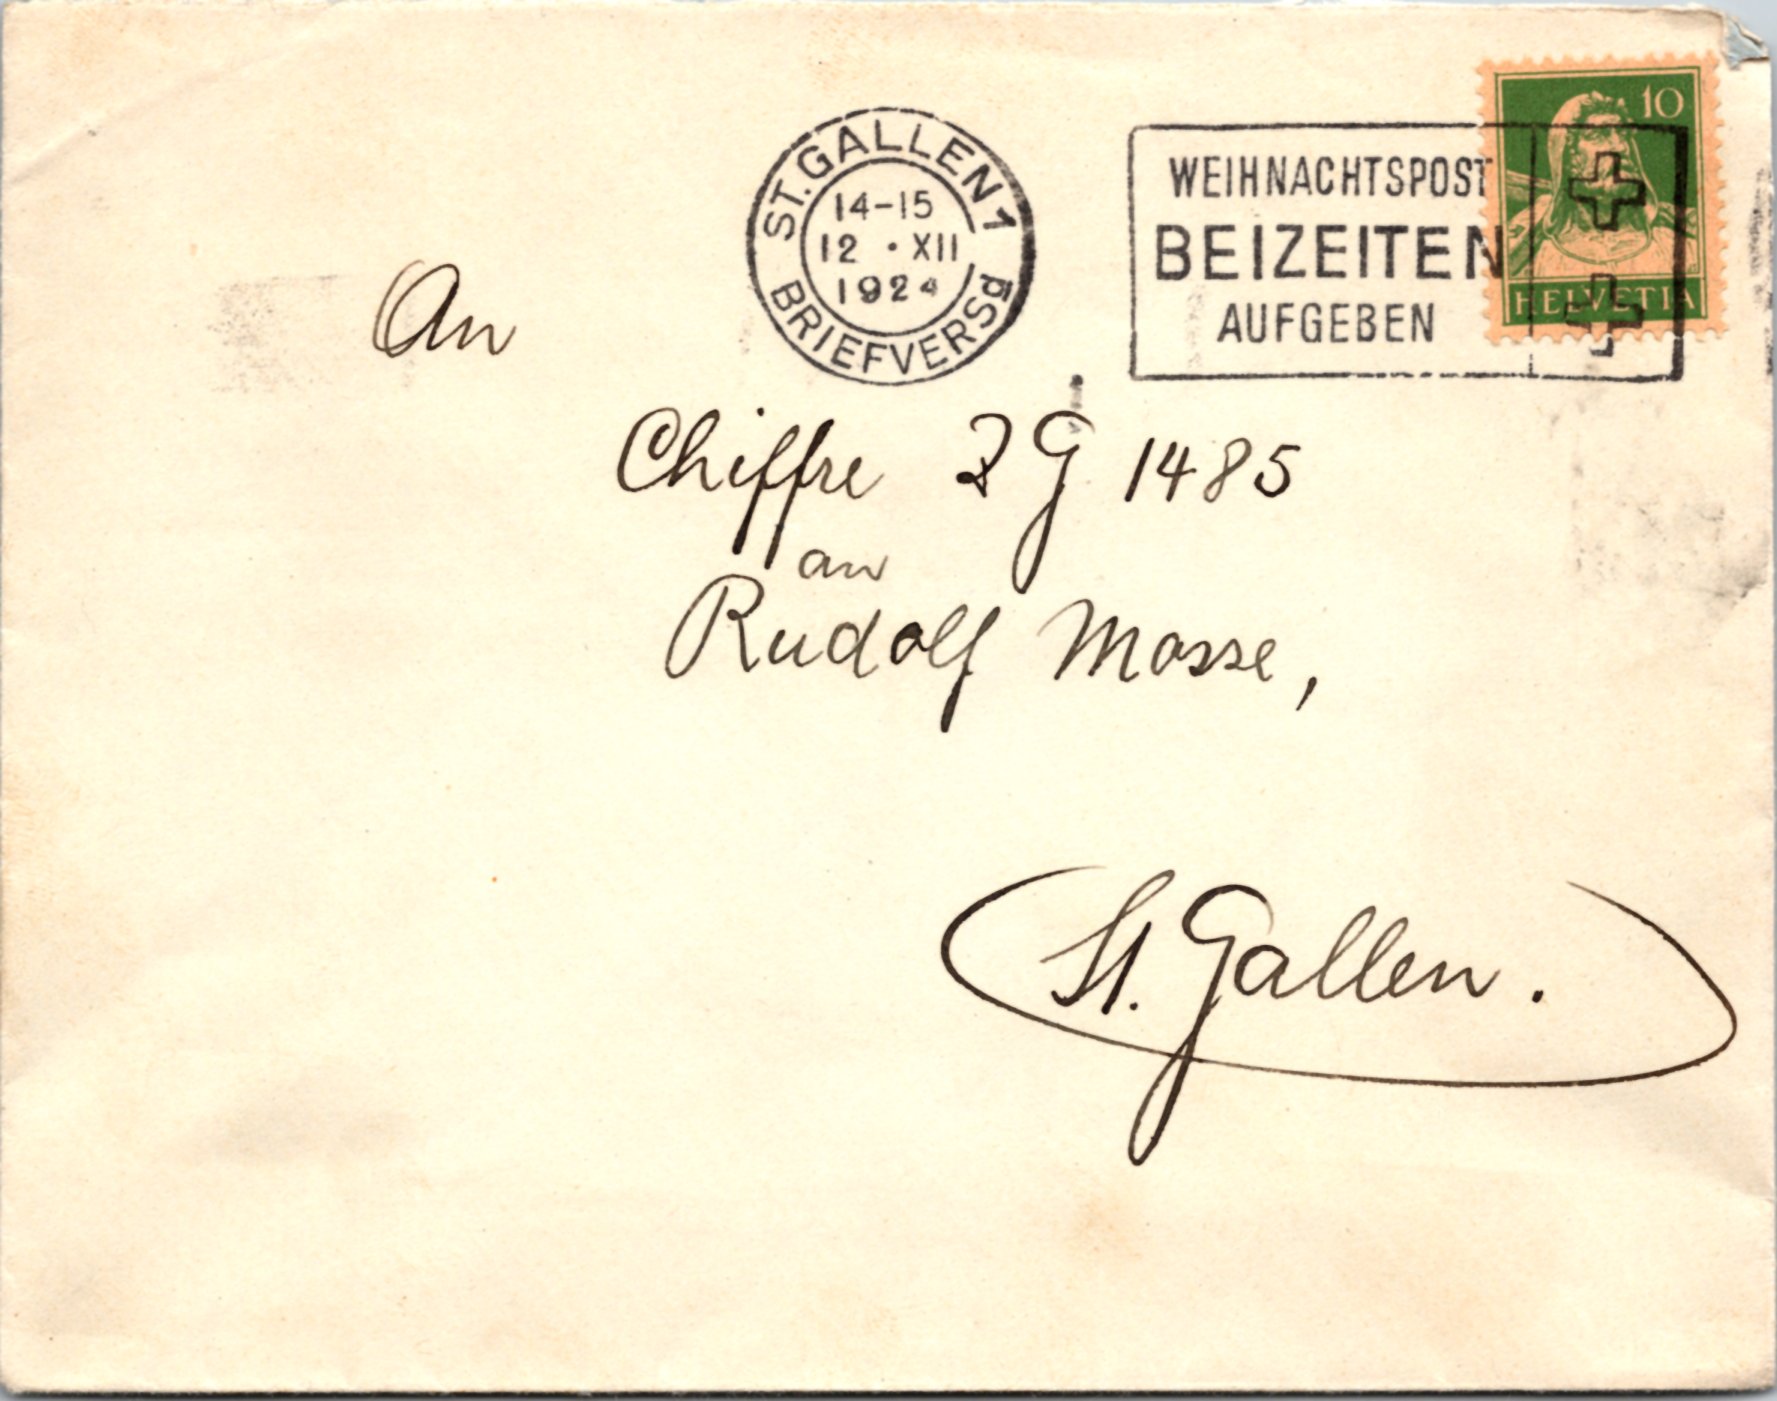 ST. GALLEN 1
14-15
12 · XII
1924
BRIEFVERSd
WEIHNACHTSPOST
BEIZEITEN
AUFGEBEN
10
HELVETIA
An
Chiffre Z G 1485
an
Rudolf Mosse,
St. Gallen.